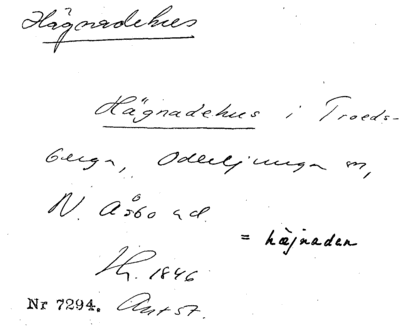 Hägnadehus
Hägnadehus i Troeds-
berga, Oderljunga sn,
N. Åsbo hd.
= häjnaden
Hr. 1846
Nr 7294. Ant 57.